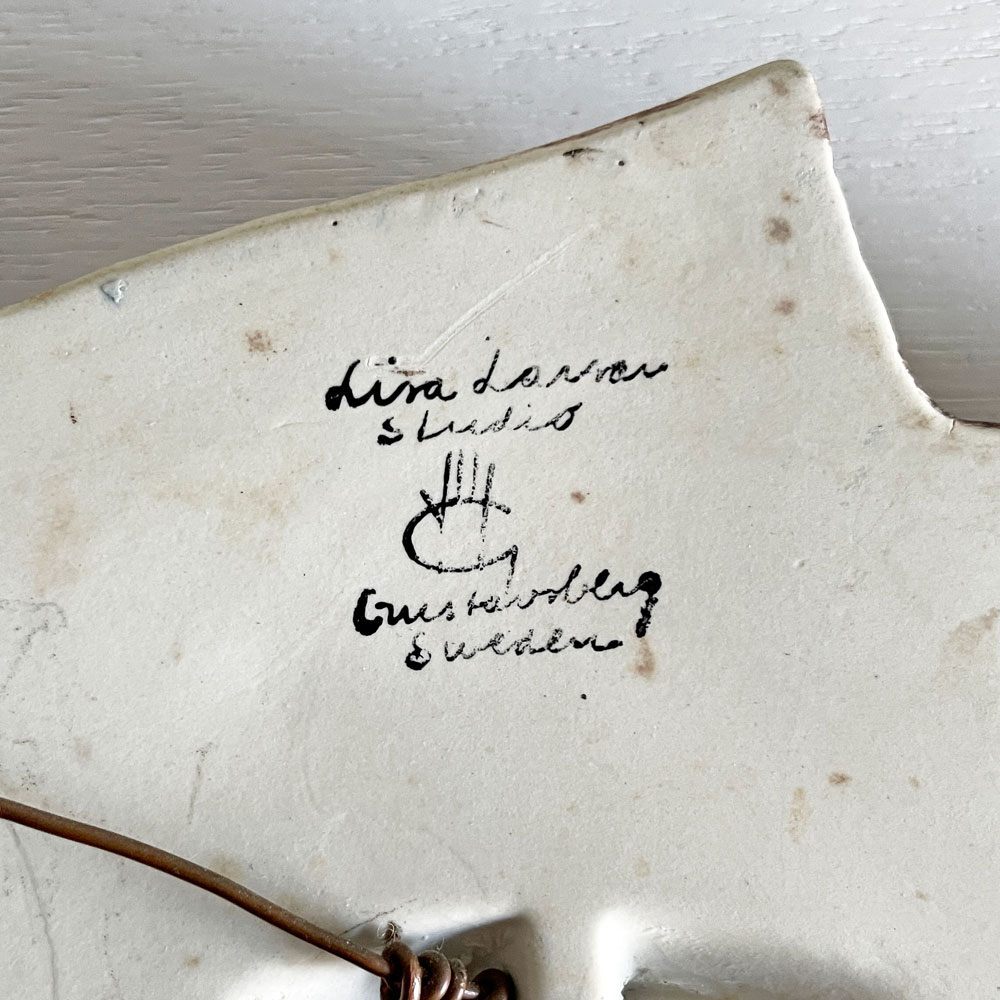 Lisa Larson
Studio
G
Gustavsberg
Sweden